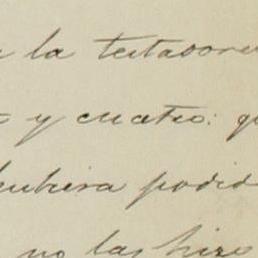 a la testadora
y cuatro: q
hubiera podid
no las hizo